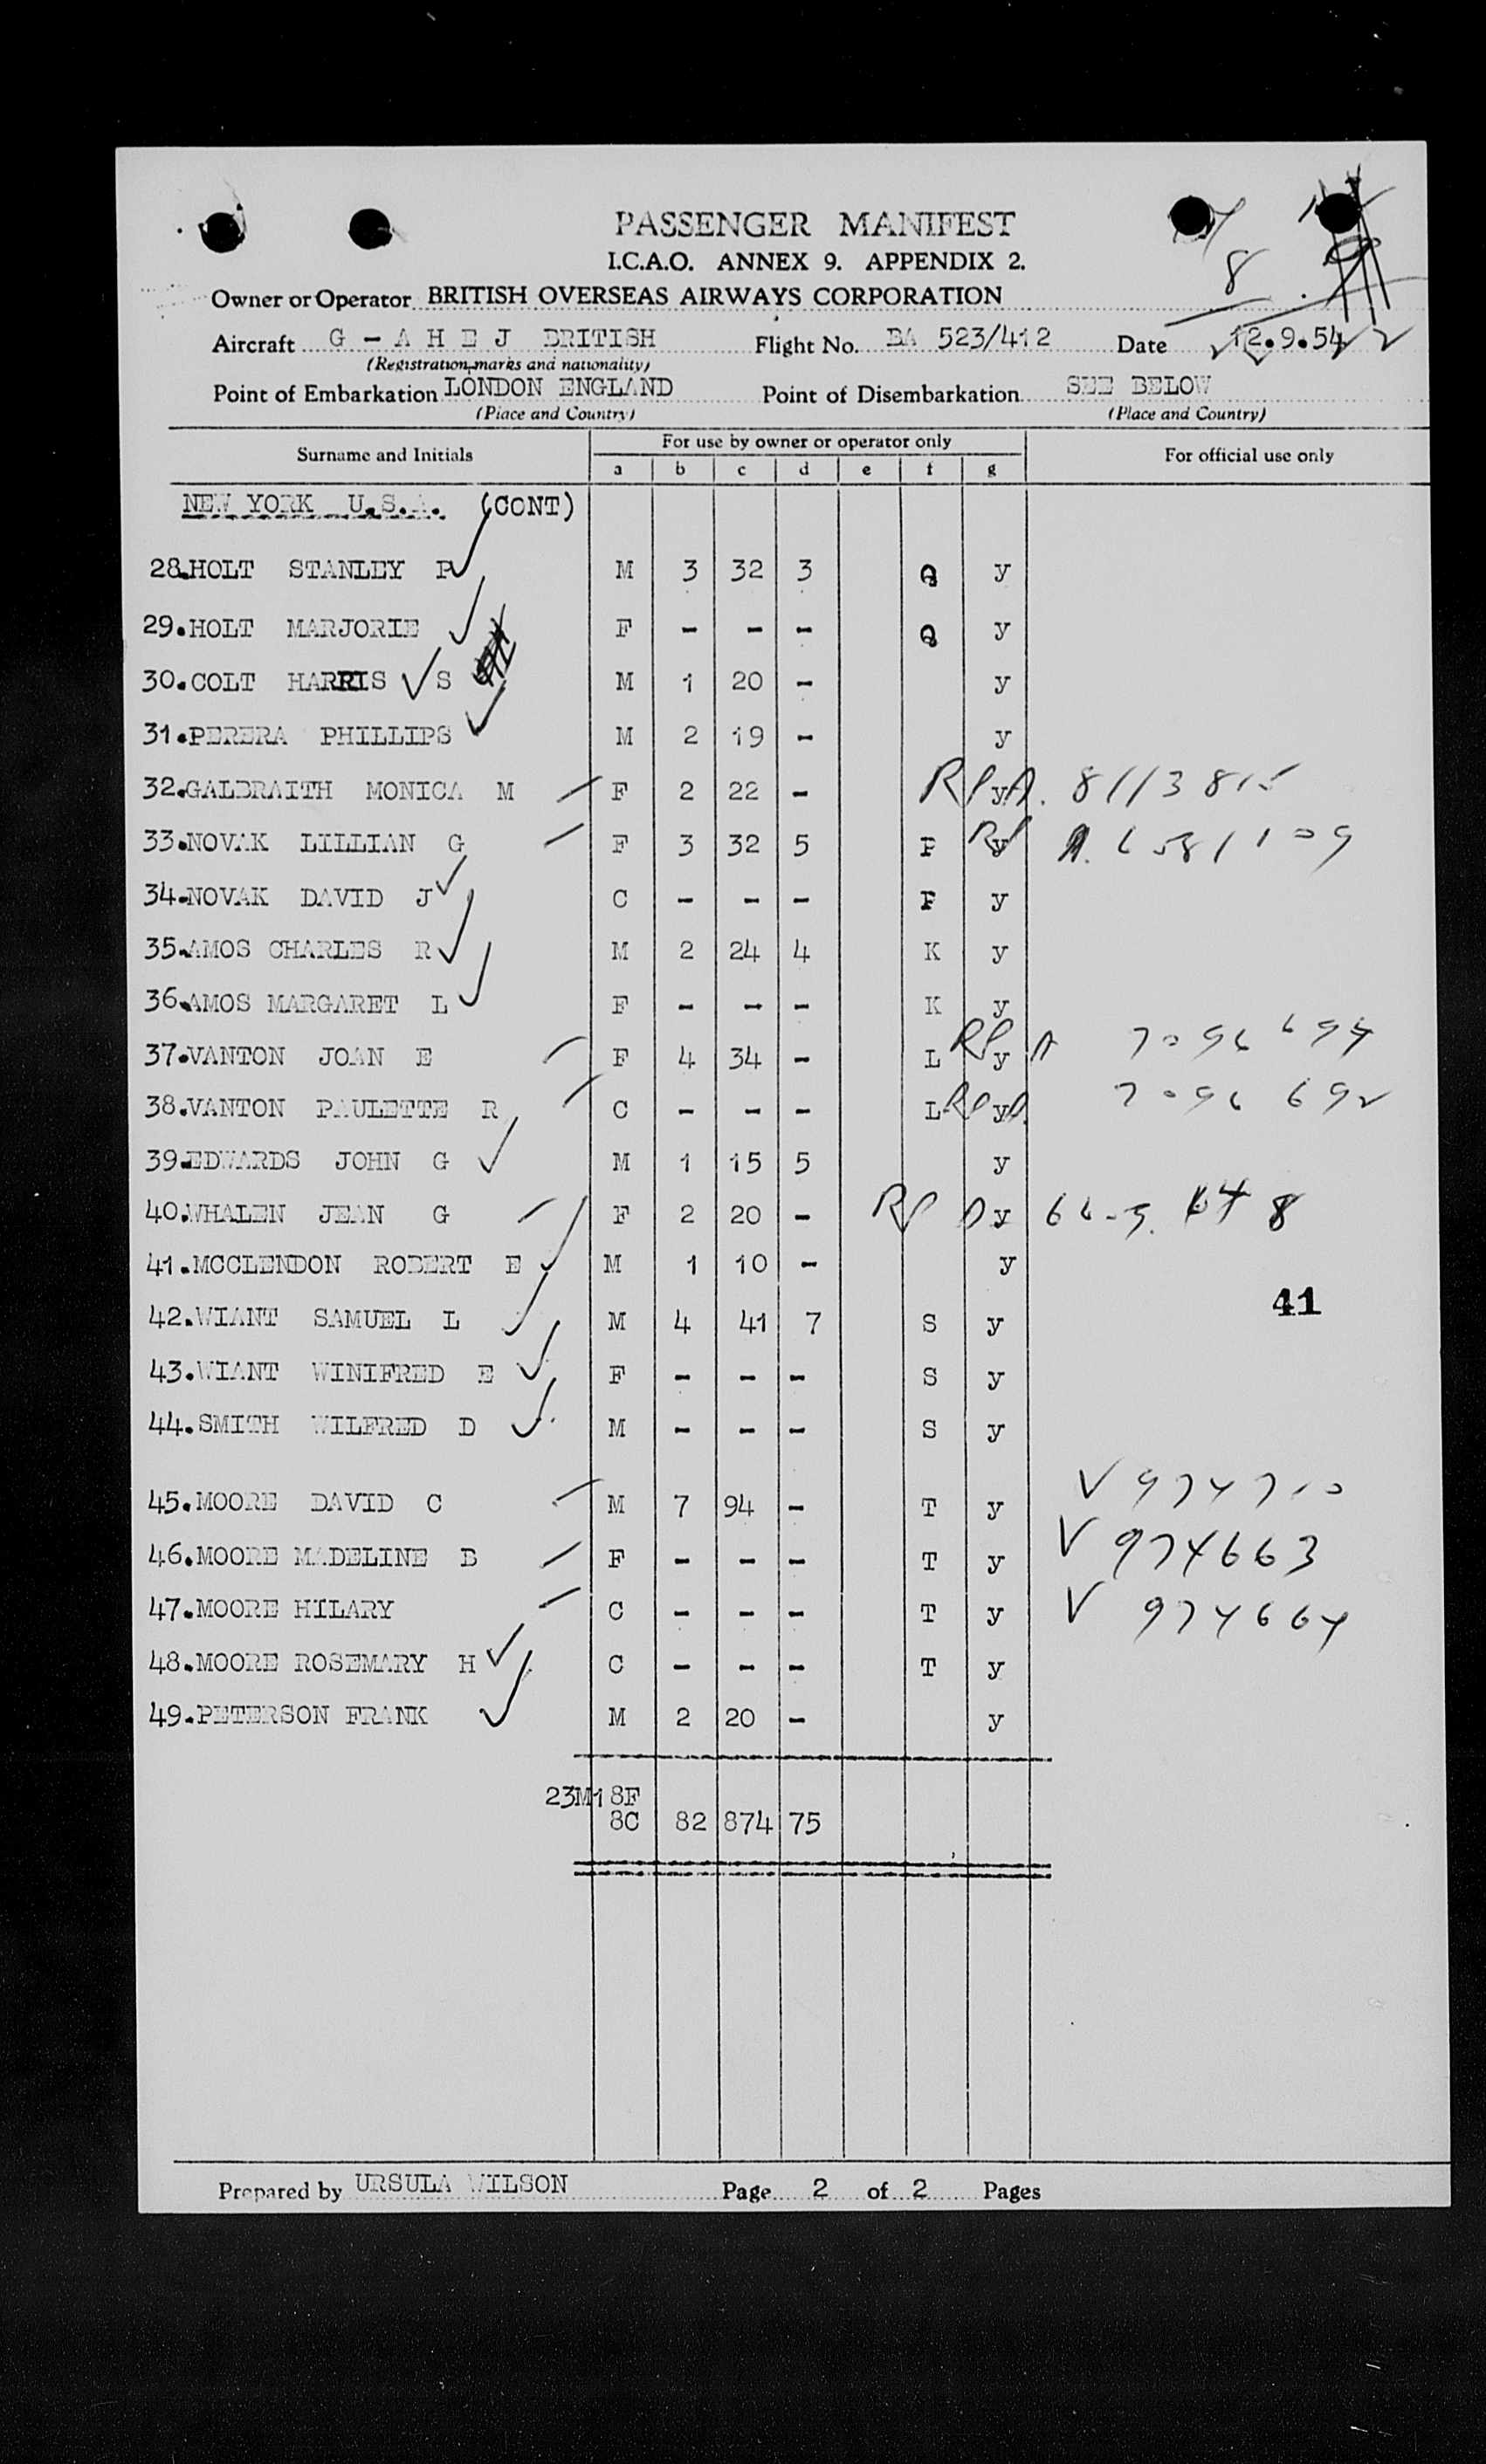 PASSENGER MANIFEST
I.C.A.O. ANNEX 9. APPENDIX 2.
8
Owner or Operator BRITISH OVERSEAS AIRWAYS CORPORATION
Aircraft G - A H E J BRITISH Flight No. BA 523/412 Date 12.9.54
(Registration marks and nationality)
Point of Embarkation LONDON ENGLAND Point of Disembarkation SEE BELOW
(Place and Country) (Place and Country)
Surname and Initials For use by owner or operator only For official use only
a b c d e f g
NEW YORK U.S.A. (CONT)
28.HOLT STANLEY P M 3 32 3 Q y
29.HOLT MARJORIE F - - - Q y
30.COLT HARRIS S M 1 20 - y
31.PERERA PHILLIPS M 2 19 - y
32.GALBRAITH MONICA M F 2 22 - y 8113815
33.NOVAK LILLIAN G F 3 32 5 F y
34.NOVAK DAVID J C - - - F y
35.AMOS CHARLES R M 2 24 4 K y
36.AMOS MARGARET L F - - - K y
37.VANTON JOAN E F 4 34 - L y 7096694
38.VANTON PAULETTE R C - - - L y 7096692
39.EDWARDS JOHN G M 1 15 5 y
40.WHALEN JEAN G F 2 20 - y
41.MCCLENDON ROBERT E M 1 10 - y
41
42.WIANT SAMUEL L M 4 41 7 S y
43.WIANT WINIFRED E F - - - S y
44.SMITH WILFRED D M - - - S y
45.MOORE DAVID C M 7 94 - T y V 974710
46.MOORE MADELINE B F - - - T y V 974663
47.MOORE HILARY C - - - T y V 974664
48.MOORE ROSEMARY H C - - - T y
49.PETERSON FRANK M 2 20 - y
23M18F
8C 82 874 75
Prepared by URSULA WILSON Page 2 of 2 Pages